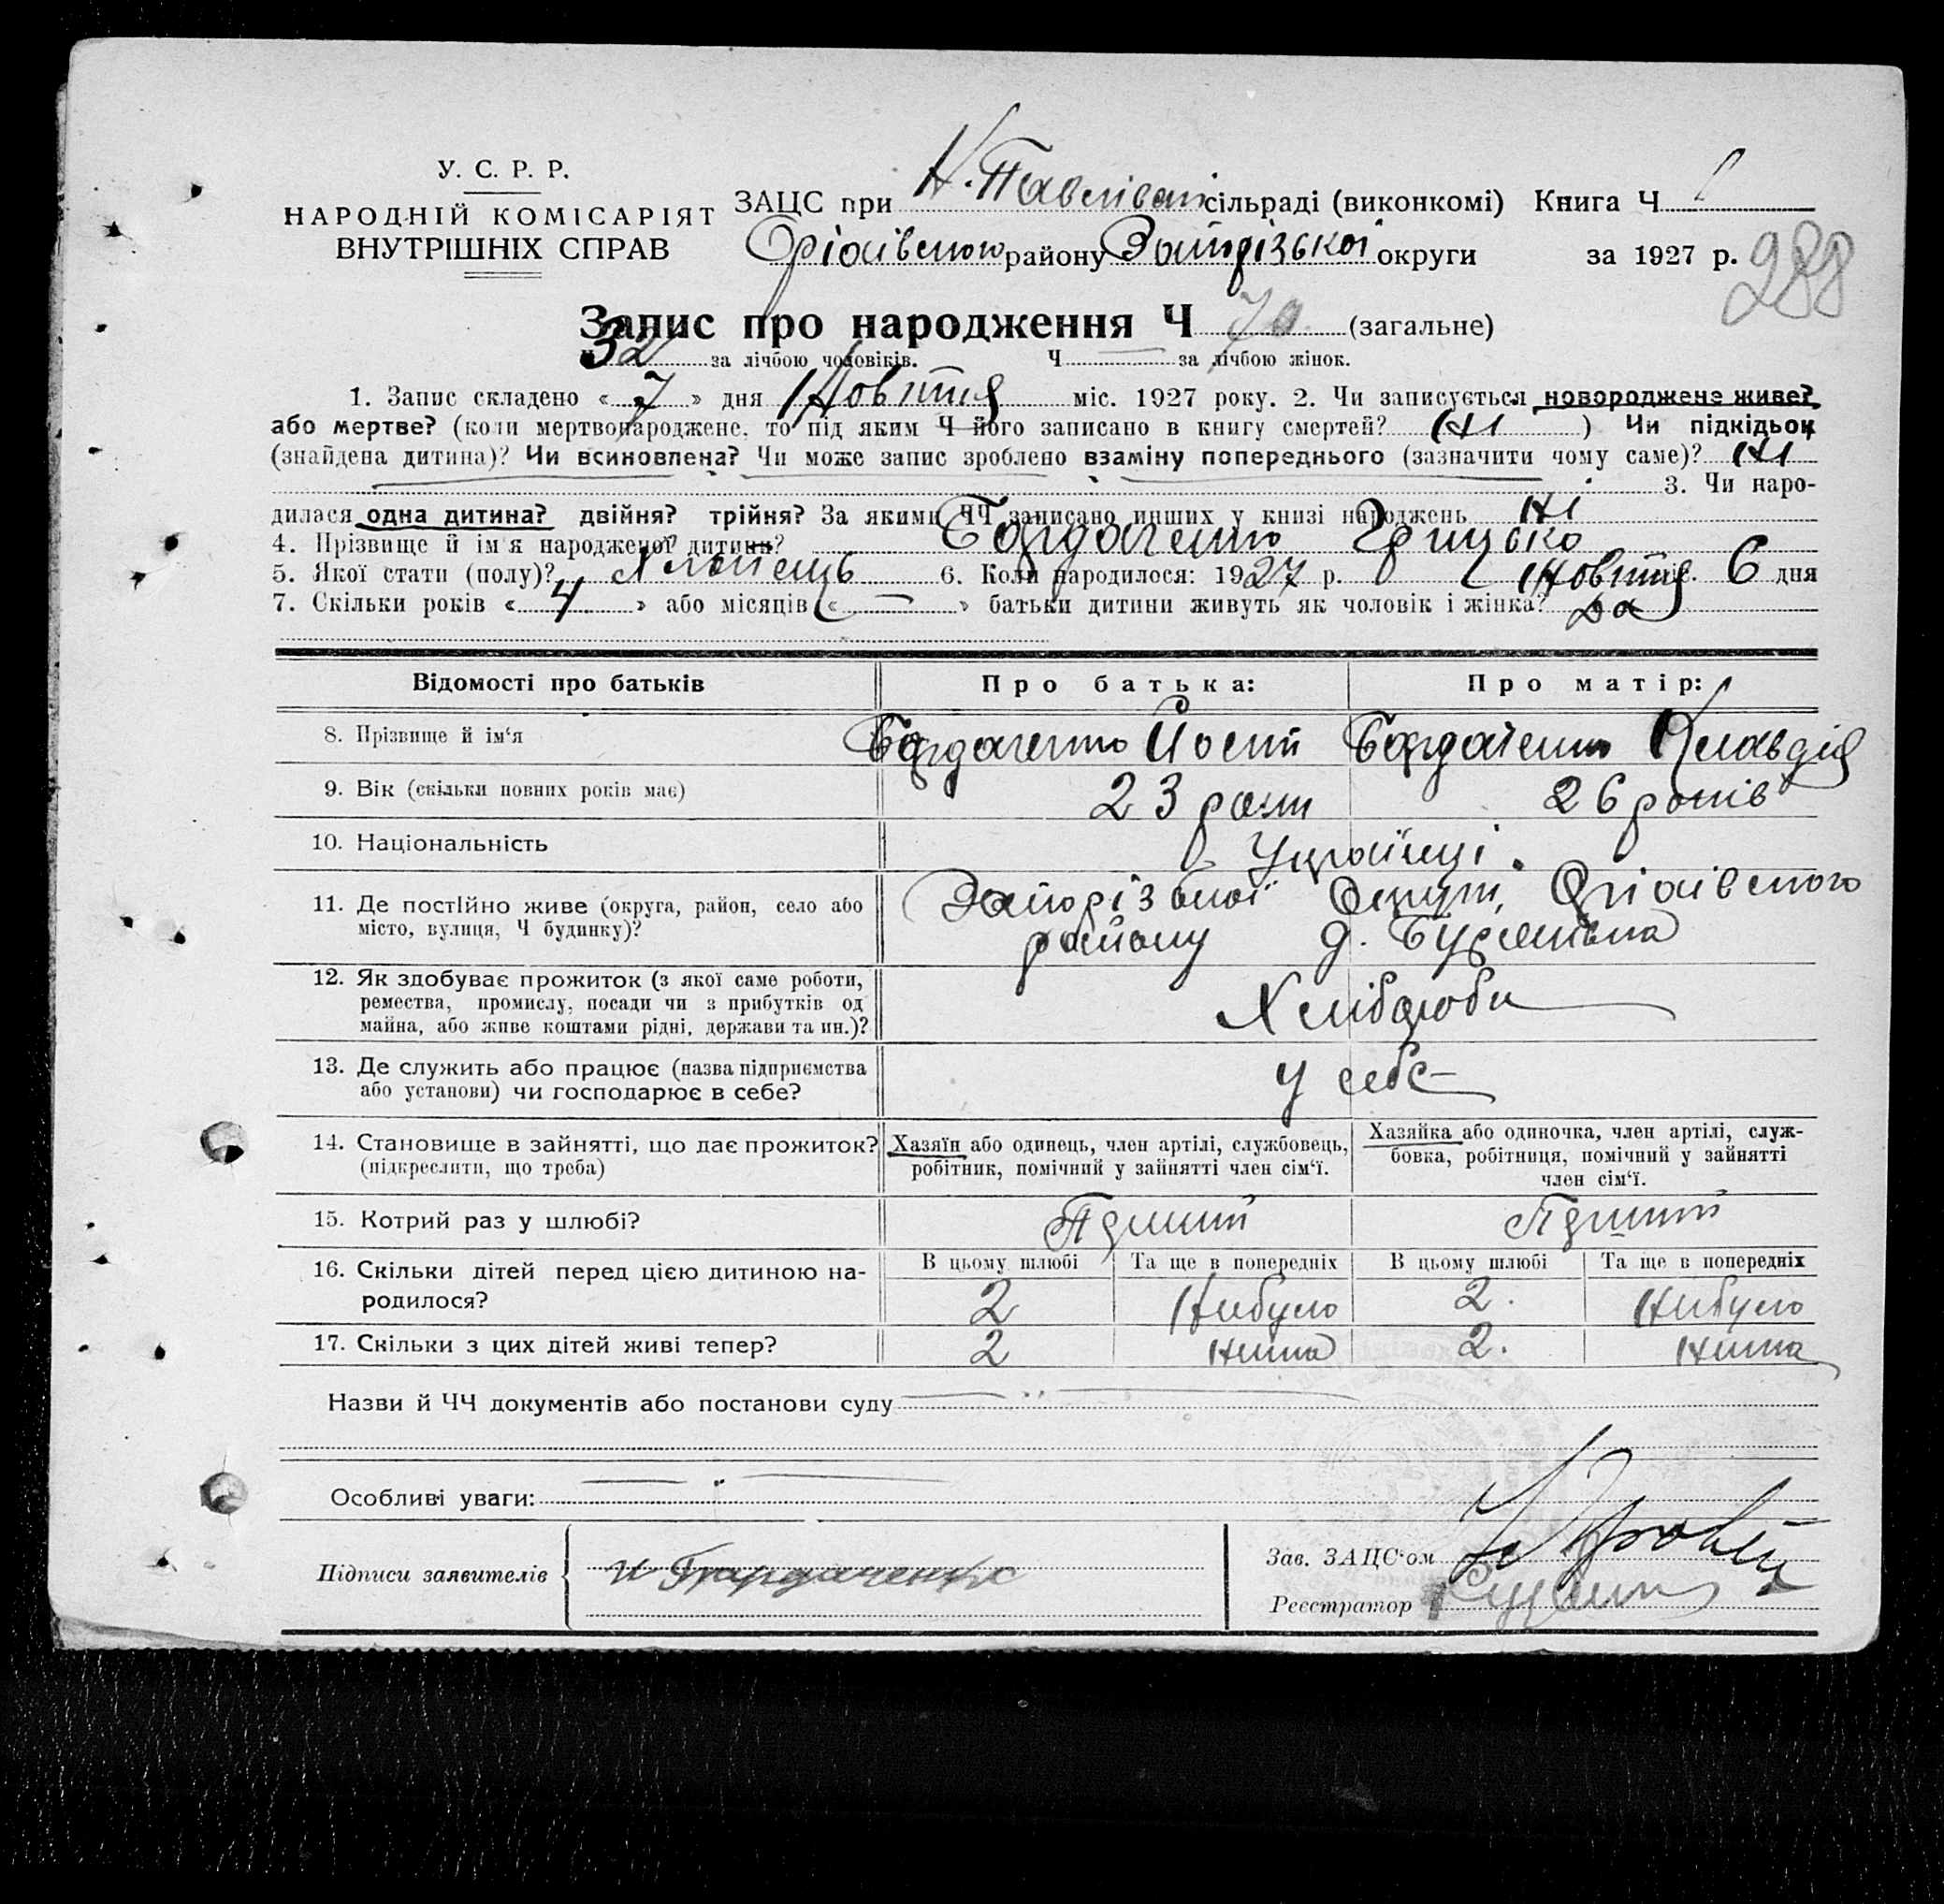 У. С. Р. Р.
НАРОДНІЙ КОМІСАРІЯТ
ВНУТРІШНІХ СПРАВ
ЗАЦС при Н.-Павлівській сільраді (виконкомі) Книга Ч
Оріхівського району Запорізької округи за 1927 р. 288
Запис про народження Ч 70 (загальне)
32 за лічбою чоловіків. Ч — за лічбою жінок.
1. Запис складено « 7 » дня Жовтня міс. 1927 року. 2. Чи записується новороджене живе?
або мертве? (коли мертвонароджене, то під яким Ч його записано в книгу смертей? Ні ) Чи підкідьок
(знайдена дитина)? Чи всиновлена? Чи може запис зроблено взаміну попереднього (зазначити чому саме)? Ні
3. Чи наро-
дилася одна дитина? двійня? трійня? За якими ЧЧ записано инших у книзі народжень Ні
4. Прізвище й ім'я народженої дитини? Бардаченко Грицько
5. Якої стати (полу)? Хлопець 6. Коли народилося: 1927 р. Жовтня 6 дня
7. Скільки років « 4 » або місяців « — » батьки дитини живуть як чоловік і жінка? Да
Відомості про батьків Про батька: Про матір:
8. Прізвище й ім'я Бардаченко Йосип Бардаченко Клавдія
9. Вік (скільки повних років має) 23 роки 26 років
10. Національність Українці.
11. Де постійно живе (округа, район, село або
місто, вулиця, Ч будинку)? Запорізької Округи, Оріхівського
району д.
12. Як здобуває прожиток (з якої саме роботи,
ремества, промислу, посади чи з прибутків од
майна, або живе коштами рідні, держави та ин.)? Хлібороби
13. Де служить або працює (назва підприємства
або установи) чи господарює в себе? У себе
14. Становище в зайнятті, що дає прожиток?
(підкреслити, що треба)
Хазяїн або одинець, член артілі, службовець,
робітник, помічний у зайнятті член сім'ї.
Хазяйка або одиночка, член артілі, служ-
бовка, робітниця, помічний у зайнятті
член сім'ї.
15. Котрий раз у шлюбі? Перший Перший
В цьому шлюбі Та ще в попередніх В цьому шлюбі Та ще в попередніх
16. Скільки дітей перед цією дитиною на-
родилося? 2 Небуло 2. Небуло
17. Скільки з цих дітей живі тепер? 2 Нима 2. Нима
Назви й ЧЧ документів або постанови суду
Особливі уваги:
Підписи заявителів Бардаченко
Зав. ЗАЦС'ом
Реєстратор